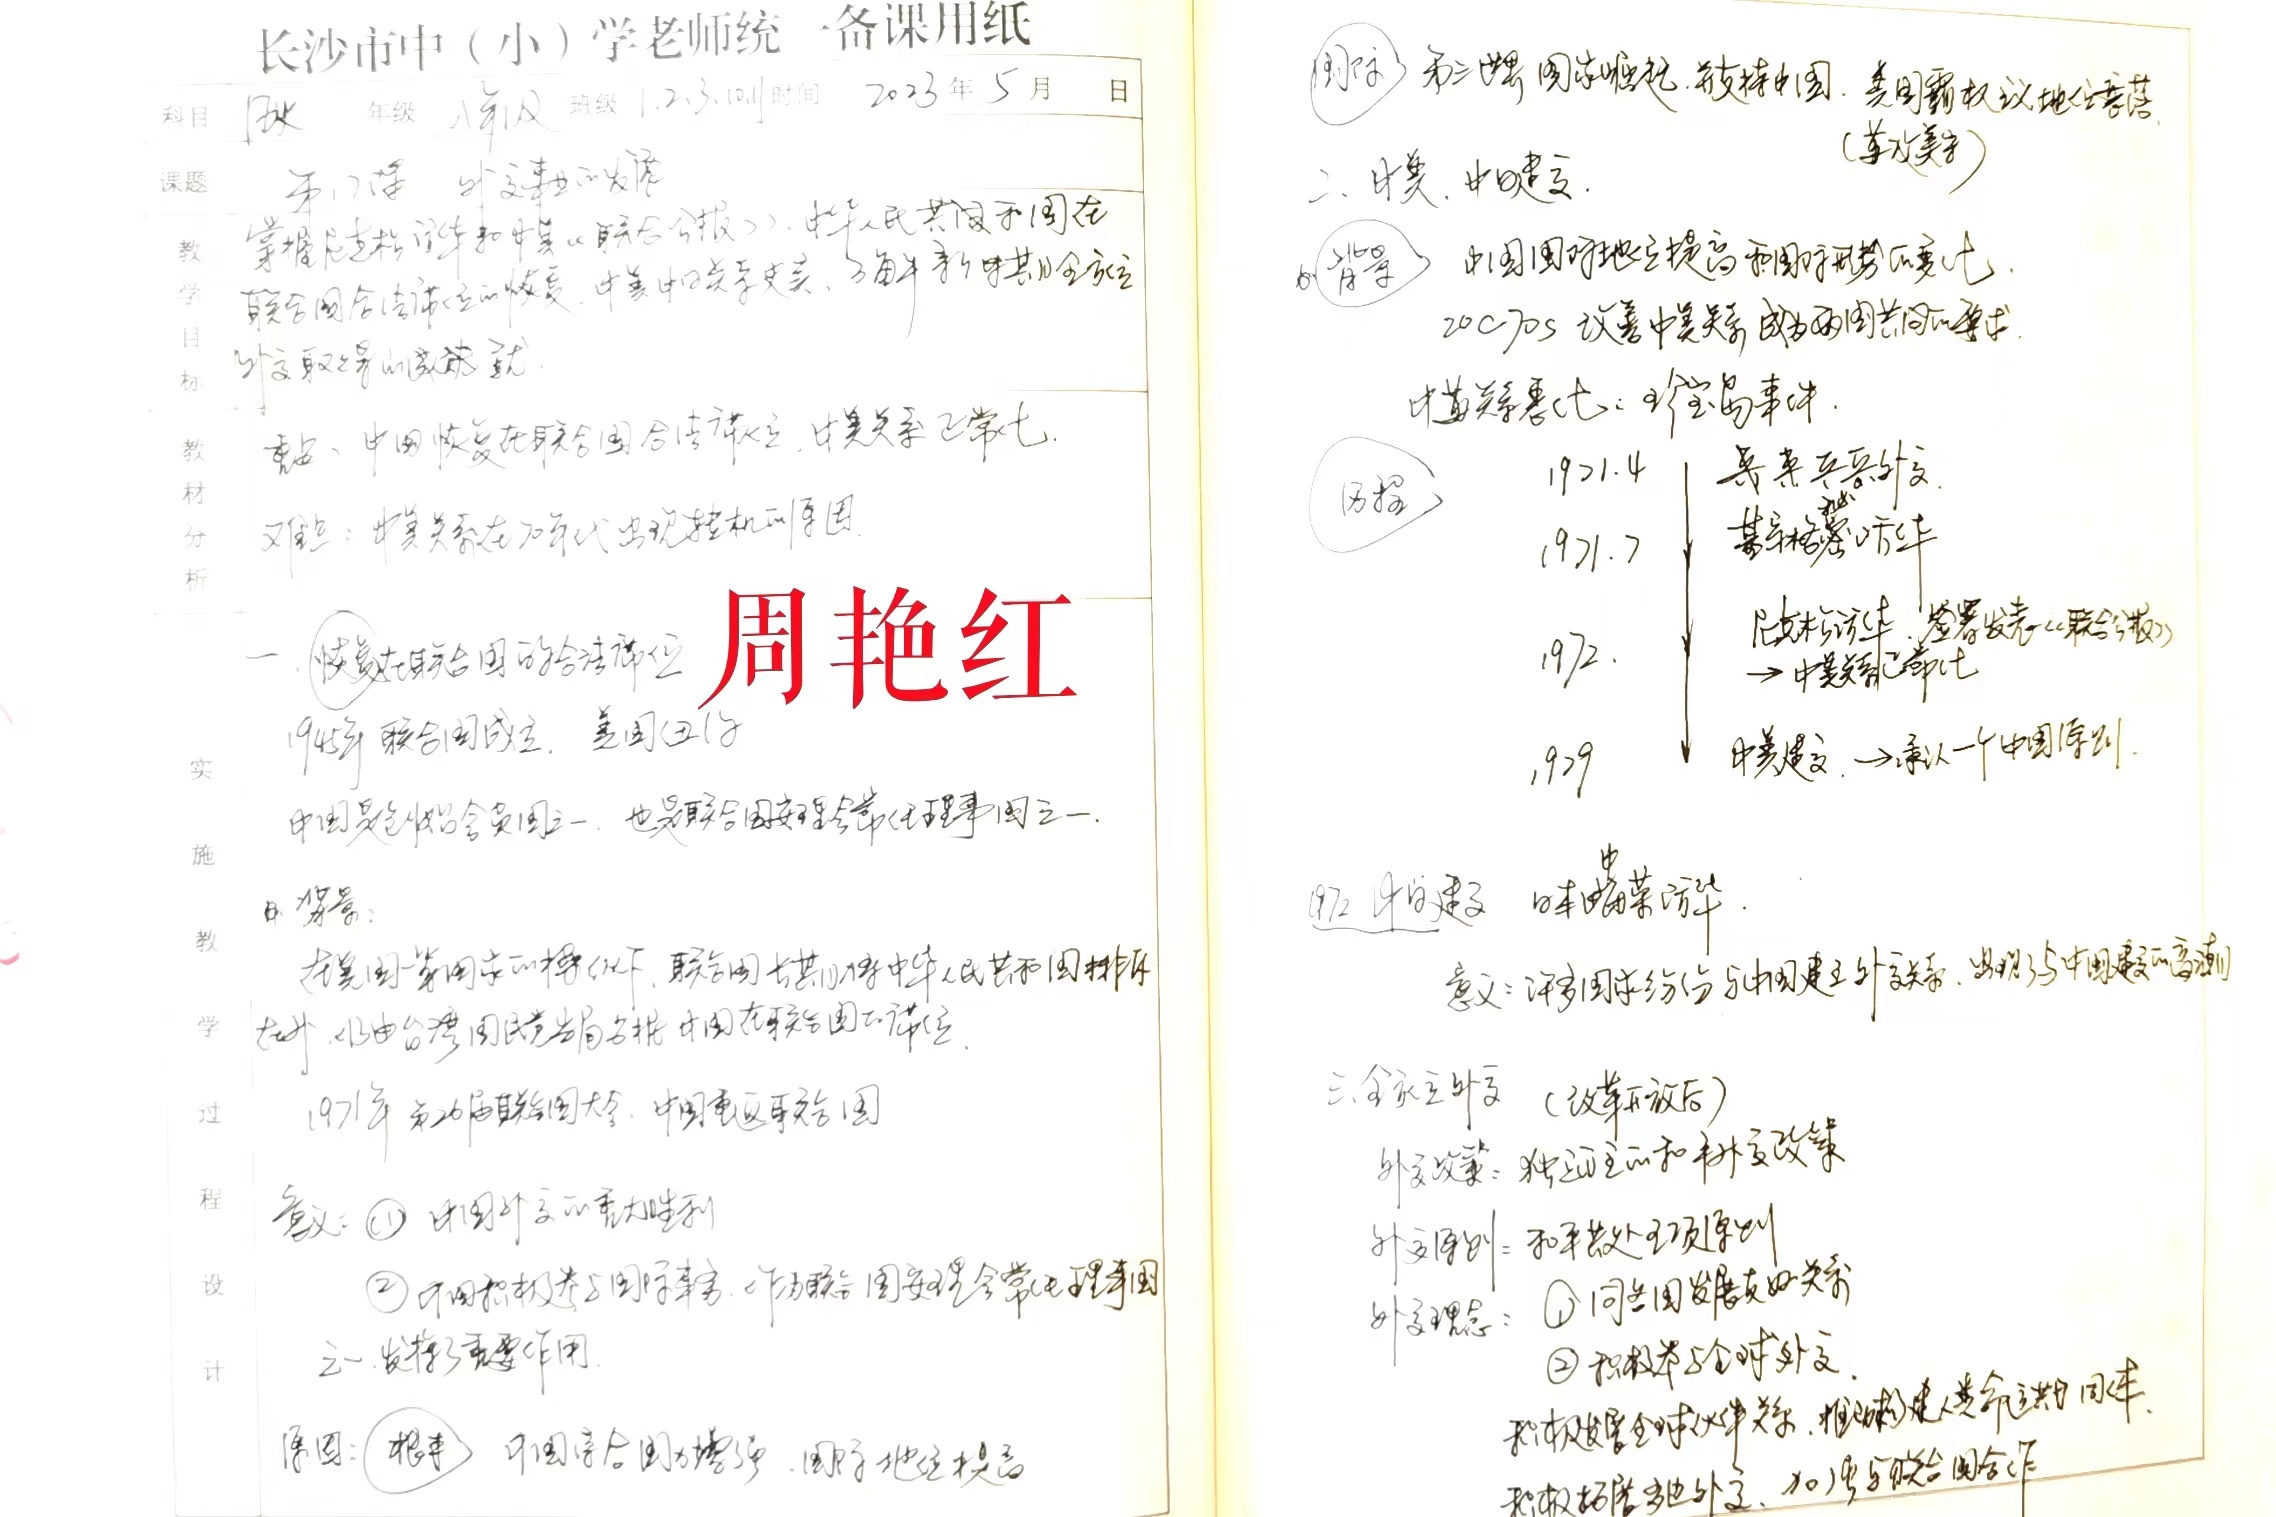 长沙市中（小）学老师统一备课用纸
科目 历史 年级 八年级 班级 1.2.3.10.11 时间 2023年5月 日
课题 第17课 外交事业的发展
教学目标
掌握尼克松访华和中美《联合公报》、中华人民共和国在
联合国合法席位的恢复、中美中日关系史实、了解新时期全方位
外交取得的成就
教材分析
重点、中国恢复在联合国合法席位、中美关系正常化.
难点：中美关系在70年代出现转机的原因.
周艳红
实施教学过程设计
一、恢复在联合国的合法席位
1945年联合国成立. 美国纽约
中国是创始会员国之一、也是联合国安理会常任理事国之一.
背景：
在美国等国家的操纵下、联合国长期将中华人民共和国排斥
在外、仍由台湾国民党当局占据中国在联合国的席位.
1971年第26届联合国大会、中国重返联合国
意义：① 中国外交的重大胜利
② 中国积极参与国际事务、作为联合国安理会常任理事国
之一、发挥了重要作用.
原因：根本 中国综合国力增强、国际地位提高
国际 第三世界国家崛起、并支持中国. 美国霸权主义地位衰落.
(苏攻美守)
二、中美、中日建交.
背景 中国国际地位提高和国际形势的变化.
20C70S 改善中美关系成为两国共同的要求.
中苏关系恶化：珍宝岛事件.
历程
1971.4 乒乓外交.
1971.7 基辛格秘密访华
1972. 尼克松访华、签署发表《联合公报》
→中美关系正常化
1979 中美建交.→承认一个中国原则.
1972 中日建交 日本田中角荣访华.
意义：许多国家纷纷与中国建立外交关系、出现了与中国建交的高潮
三、全方位外交 (改革开放后)
外交政策：独立自主的和平外交政策
外交原则：和平共处五项原则
外交理念：① 同各国发展友好关系
② 积极参与全球外交.
积极发展全球伙伴关系、推动构建人类命运共同体.
积极拓展多边外交、加强与联合国合作